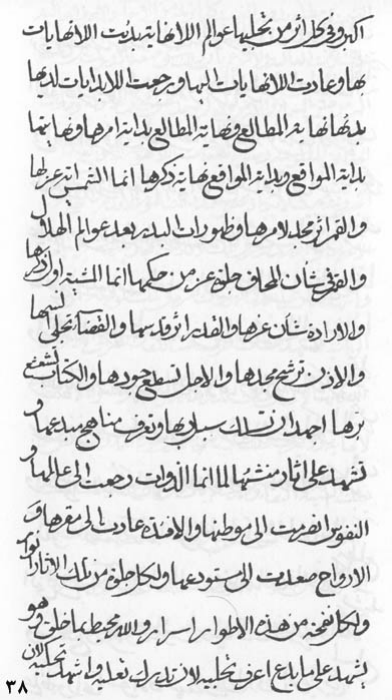 اكبر و فى كل اثر من تجليها عوالم اللانهاية بدئت اللانهايات
بها و عادت اللانهايات اليها و رجعت اللابدايات لديها
بدئها نهاية المطالع و نهاية المطالع بداية امرها و نهايتها
بداية المواقع و بداية المواقع نهاية ذكرها انما الشمس اية عزها
و القمر اثر مجد لامرها و ظهورات البدر بعد عوالم الهلال
و القمر فى شأن المحاق جلوة عز من حكمها انما المشية اول ذكرها
و الارادة شأن عزها و القدر اثر قدسها و القضاء تجلى
و الاذن ترشح مجدها و الاجل تسطع جودها و الكتاب تشعشع
برها احمد ان تسلك سبل ربها و تعرف مناهج مبدعها و
تشهد على اثار منشئها لما انما الذوات رجعت الى عالمها و
النفوس انصرفت الى موطنها و الافئدة عادت الى مقرها و
الارواح صعدت الى مستودعها و لكل جلوة من تلك الاثار
و لكل نفحة من هذه الاطوار اسرار و الله محيط بما خلق و هو
يشهد على ما ابدع اعرف تجليه لان تدرك تعليه و اشهد
٣٨